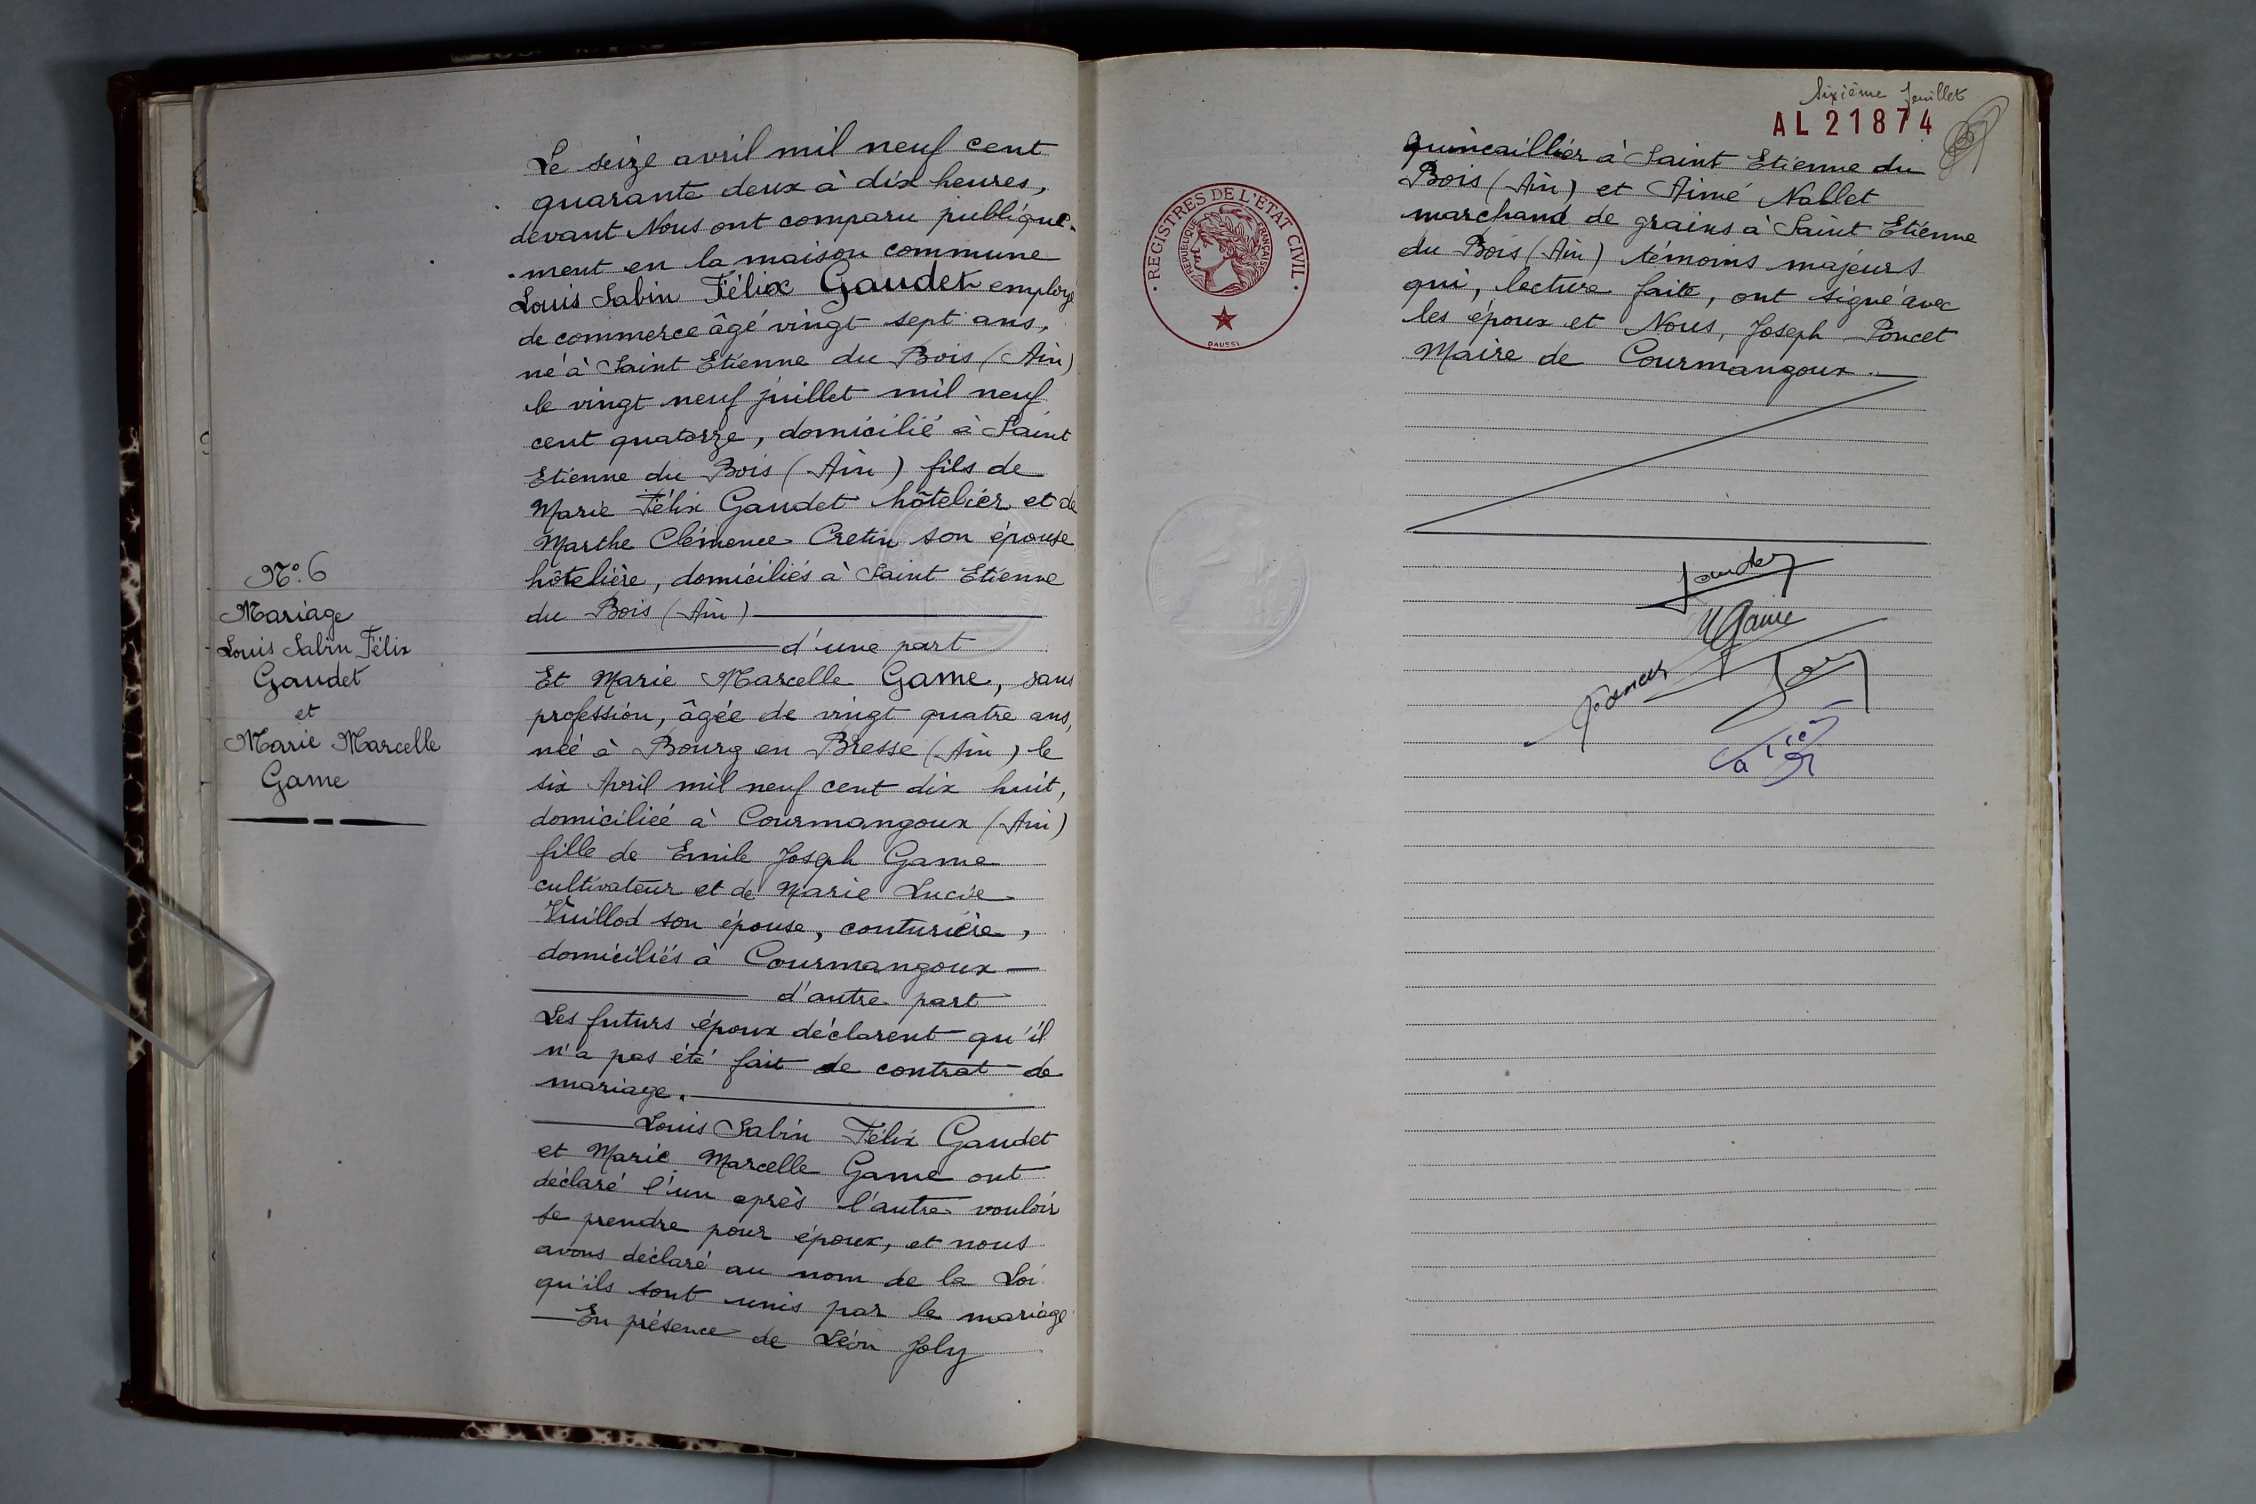 Le seize avril mil neuf cent
quarante deux à dix heures,
devant Nous ont comparu publique-
-ment en la maison commune
Louis Sabin Félix Gaudet employé
de commerce âgé vingt sept ans,
né à Saint Etienne du Bois (Ain)
le vingt neuf juillet mil neuf
cent quatorze, domicilié à Saint
Etienne du Bois (Ain) fils de
Marie Félix Gaudet hôtelier et de
Marthe Clémence Cretin son épouse
hôtelière, domiciliés à Saint Etienne
du Bois (Ain)
d'une part
N°. 6
Mariage
Louis Sabin Félix
Gaudet
et
Marie Marcelle
Game
Et Marie Marcelle Game, sans
profession, âgée de vingt quatre ans,
née à Bourg en Bresse (Ain) le
six Avril mil neuf cent dix huit,
domiciliée à Courmangoux (Ain)
fille de Emile Joseph Game
cultivateur et de Marie Lucie
Vuillod son épouse, couturière,
domiciliés à Courmangoux
d'autre part
Les futurs époux déclarent qu'il
n'a pas été fait de contrat de
mariage.
Louis Sabin Félix Gaudet
et Marie Marcelle Game ont
déclaré l'un après l'autre vouloir
se prendre pour époux, et nous
avons déclaré au nom de la Loi
qu'ils sont unis par le mariage
En présence de Léon Joly
Sixième feuillet
AL 21874
REGISTRES DE L'ETAT CIVIL
REPUBLIQUE FRANÇAISE
DAUSSI
quincaillier à Saint Etienne du
Bois (Ain) et Aimé Nallet
marchand de grains à Saint Etienne
du Bois (Ain) témoins majeurs
qui, lecture faite, ont signé avec
les époux et Nous, Joseph Poncet
Maire de Courmangoux.
Gaudet
M Game
Poncet
Joly